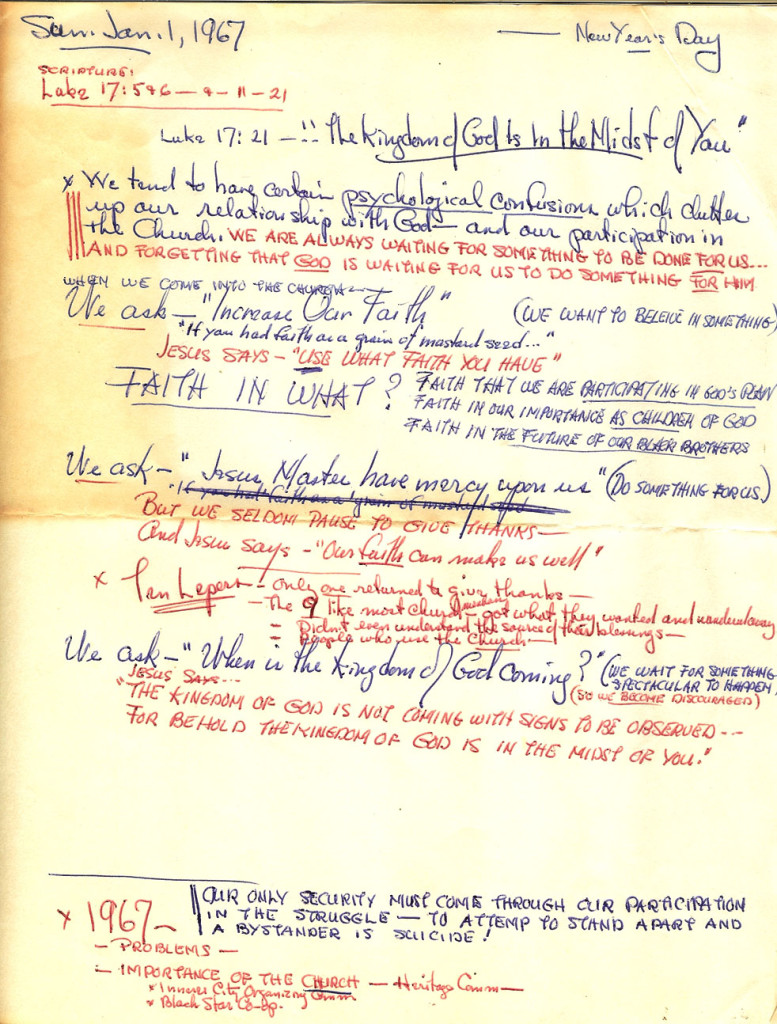 Sun. Jan. 1, 1967 — New Year's Day
SCRIPTURE:
Luke 17: 5&6 — 9 — 11 — 21
Luke 17: 21 — "The Kingdom of God Is In the Midst of You"
x We tend to have certain psychological confusions which clutter
up our relationship with God — and our participation in
the Church. WE ARE ALWAYS WAITING FOR SOMETHING TO BE DONE FOR US...
AND FORGETTING THAT GOD IS WAITING FOR US TO DO SOMETHING FOR HIM
WHEN WE COME INTO THE CHURCH —
We ask — "Increase Our Faith" (WE WANT TO BELEIVE IN SOMETHING)
"If you had faith as a grain of mustard seed..."
JESUS SAYS — "USE WHAT FAITH YOU HAVE"
FAITH IN WHAT? FAITH THAT WE ARE PARTICIPATING IN GOD'S PLAN
FAITH IN OUR IMPORTANCE AS CHILDREN OF GOD
FAITH IN THE FUTURE OF OUR BLACK BROTHERS
We ask — "Jesus, Master have mercy upon us" (DO SOMETHING FOR US)
"If you had faith as a grain of mustard seed
BUT WE SELDOM PAUSE TO GIVE THANKS —
And Jesus says — "Our faith can make us well"
x Ten Lepers — only one returned to give thanks —
— The 9 like most church members — got what they wanted and wandered away
— Didn't even understand the source of their blessings —
— People who use the Church —
We ask — "When is the Kingdom of God Coming?" (WE WAIT FOR SOMETHING
SPECTACULAR TO HAPPEN)
JESUS SAYS... (SO WE BECOME DISCOURAGED)
"THE KINGDOM OF GOD IS NOT COMING WITH SIGNS TO BE OBSERVED --
FOR BEHOLD THE KINGDOM OF GOD IS IN THE MIDST OF YOU."
x 1967 — OUR ONLY SECURITY MUST COME THROUGH OUR PARTICIPATION
IN THE STRUGGLE — TO ATTEMP TO STAND APART AND
A BYSTANDER IS SUICIDE!
— PROBLEMS —
— IMPORTANCE OF THE CHURCH — Heritage Comm —
* Inner City Organizing Comm.
* Black Star Co-op.